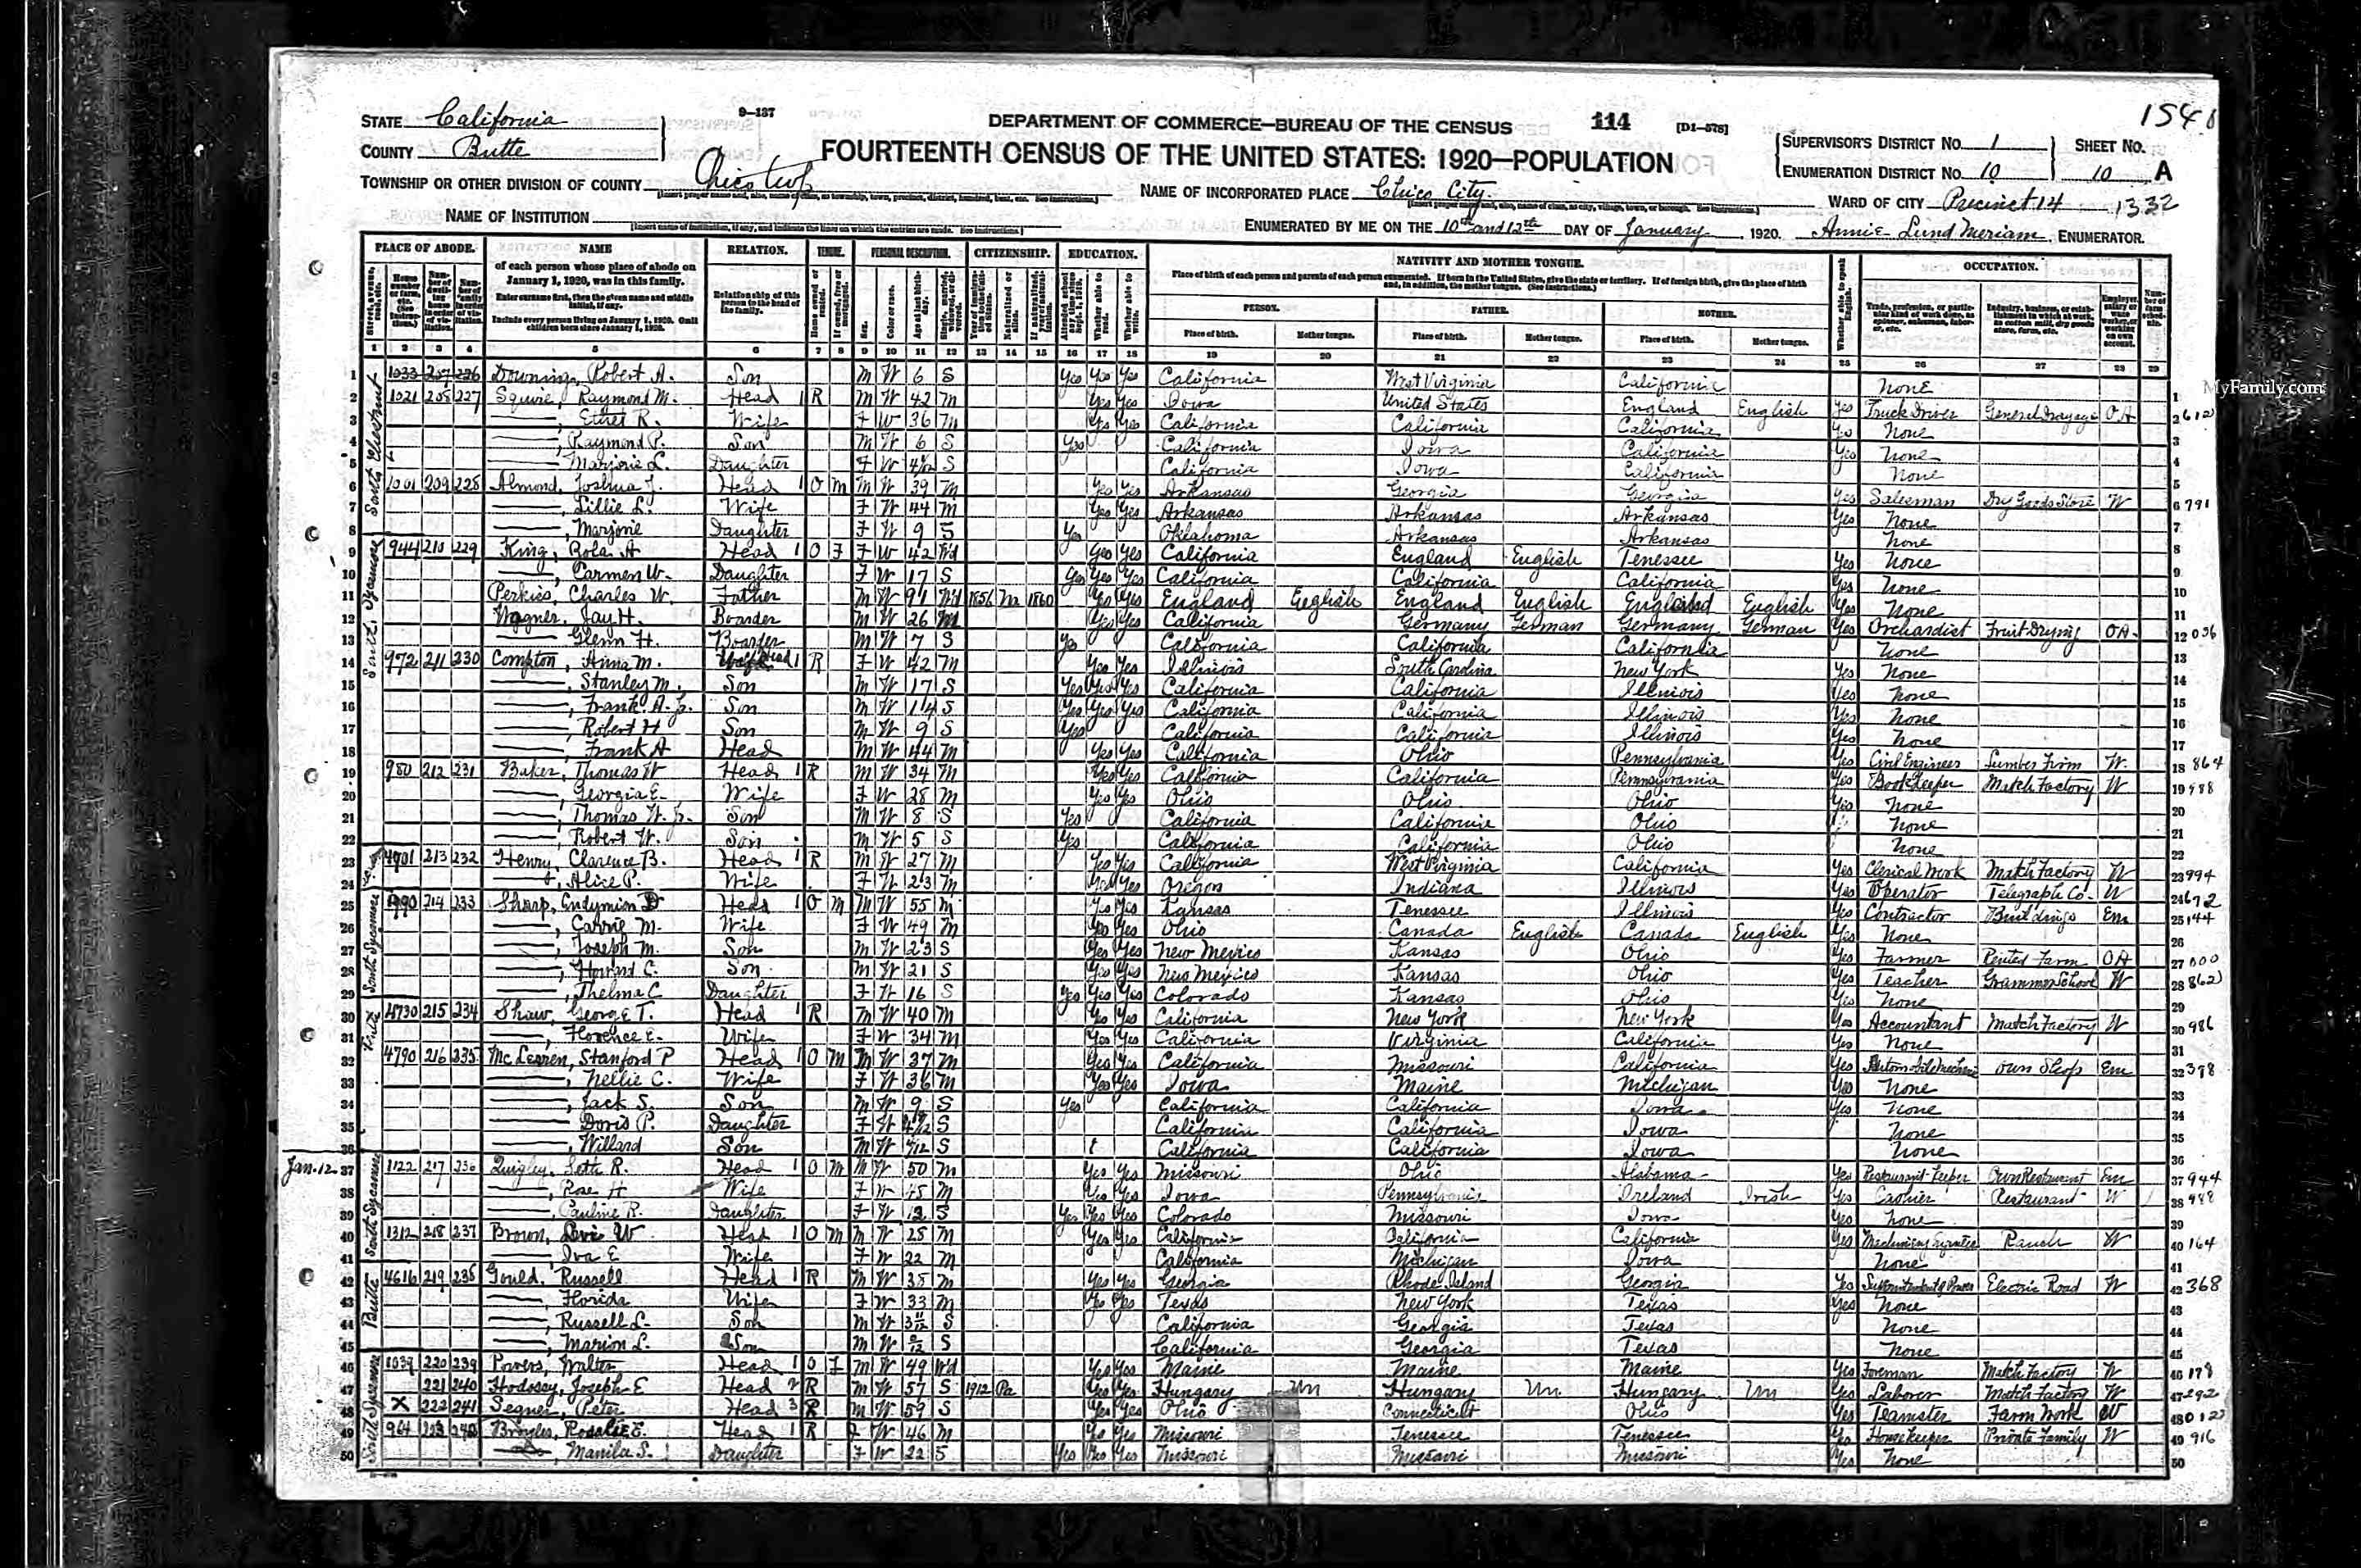 1546
9-137
DEPARTMENT OF COMMERCE—BUREAU OF THE CENSUS 114 [D1-578]
STATE California
COUNTY Butte
FOURTEENTH CENSUS OF THE UNITED STATES: 1920—POPULATION
SUPERVISOR'S DISTRICT No. 1 SHEET No.
ENUMERATION DISTRICT No. 10 10 A
TOWNSHIP OR OTHER DIVISION OF COUNTY Chico twp
NAME OF INCORPORATED PLACE Chico City
WARD OF CITY Precinct 14 1332
NAME OF INSTITUTION
ENUMERATED BY ME ON THE 10th and 12th DAY OF January, 1920. Annie Lund Meriam, ENUMERATOR.
PLACE OF ABODE. NAME RELATION. TENURE. PERSONAL DESCRIPTION. CITIZENSHIP. EDUCATION. NATIVITY AND MOTHER TONGUE. OCCUPATION.
of each person whose place of abode on January 1, 1920, was in this family.
Enter surname first, then the given name and middle initial, if any.
Include every person living on January 1, 1920. Omit children born since January 1, 1920.
Relationship of this person to the head of the family.
PERSON. FATHER. MOTHER.
Place of birth. Mother tongue. Place of birth. Mother tongue. Place of birth. Mother tongue.
1 2 3 4 5 6 7 8 9 10 11 12 13 14 15 16 17 18 19 20 21 22 23 24 25 26 27 28 29
1 1033 207 226 Downing, Robert A. Son M W 6 S Yes Yes Yes California West Virginia California None 1
2 1021 208 227 Squire, Raymond M. Head 1 R M W 42 M Yes Yes Iowa United States England English Yes Truck Driver General Drayage OA 2
3 Ethel R. Wife F W 36 M Yes Yes California California California Yes None 3
4 Raymond P. Son M W 6 S Yes California Iowa California Yes None 4
5 Marjorie L. Daughter F W S California Iowa California None 5
6 1001 209 228 Almond, Joshua J. Head 1 O M M W 39 M Yes Yes Arkansas Georgia Georgia Yes Salesman Dry Goods Store W 6 791
7 Lillie L. Wife F W 44 M Yes Yes Arkansas Arkansas Arkansas Yes None 7
8 Marjorie Daughter F W 9 S Yes Oklahoma Arkansas Arkansas None 8
9 944 210 229 King, Rola A Head 1 O F F W 42 Wd Yes Yes California England English Tenessee Yes None 9
10 Carmen W. Daughter F W 17 S Yes Yes Yes California California California Yes None 10
11 Perkins, Charles W. Father M W 91 Wd 1856 Na 1860 Yes Yes England English England English England English Yes None 11
12 Wagner, Jay H. Boarder M W 26 M Yes Yes California Germany German Germany German Yes Orchardist Fruit Drying OA 12 036
13 Glenn H. Boarder M W 7 S Yes California California California None 13
14 972 211 230 Compton, Anna M. Head 1 R F W 42 M Yes Yes Illinois South Carolina New York Yes None 14
15 Stanley M. Son M W 17 S Yes Yes Yes California California Illinois Yes None 15
16 Frank A. Jr. Son M W 14 S Yes Yes Yes California California Illinois Yes None 16
17 Robert H Son M W 9 S Yes California California Illinois Yes None 17
18 Frank A Head M W 44 M Yes Yes California Ohio Pennsylvania Yes Civil Engineer Lumber Firm W 18 864
19 980 212 231 Baker, Thomas W Head 1 R M W 34 M Yes Yes California California Pennsylvania Yes Bookkeeper Match Factory W 19 988
20 Georgia E. Wife F W 28 M Yes Yes Ohio Ohio Ohio Yes None 20
21 Thomas W. Jr. Son M W 8 S Yes California California Ohio None 21
22 Robert W. Son M W 5 S Yes California California Ohio None 22
23 213 232 Henry, Clarence B. Head 1 R M W 27 M Yes Yes California West Virginia California Yes Clerical Work Match Factory W 23 994
24 Alice P. Wife F W 23 M Yes Yes Oregon Indiana Illinois Yes Operator Telegraph Co. W 24 672
25 214 233 Sharp, Endymion D Head 1 O M M W 55 M Yes Yes Kansas Tenessee Illinois Yes Contractor Buildings Em 25 144
26 Carrie M. Wife F W 49 M Yes Yes Ohio Canada English Canada English Yes None 26
27 Joseph M. Son M W 23 S Yes Yes New Mexico Kansas Ohio Yes Farmer Rented Farm OA 27 000
28 Howard C. Son M W 21 S Yes Yes New Mexico Kansas Ohio Yes Teacher Grammar School W 28 862
29 Thelma C Daughter F W 16 S Yes Yes Yes Colorado Kansas Ohio Yes None 29
30 215 234 Shaw, George T. Head 1 R M W 40 M Yes Yes California New York New York Yes Accountant Match Factory W 30 986
31 Florence E. Wife F W 34 M Yes Yes California Virginia California Yes None 31
32 4790 216 235 Mc Lerren, Stanford P Head 1 O M M W 37 M Yes Yes California Missouri California Yes Automobile Mechanic Own Shop Em 32 398
33 Nellie C. Wife F W 36 M Yes Yes Iowa Maine Michigan Yes None 33
34 Jack S. Son M W 9 S Yes California California Iowa Yes None 34
35 Doris P. Daughter F W S California California Iowa None 35
36 Willard Son M W S California California Iowa None 36
Jan. 12 37 1122 217 236 Quigley, Seth R. Head 1 O M M W 50 M Yes Yes Missouri Ohio Alabama Yes Restaurant Keeper Own Restaurant Em 37 944
38 Rose H Wife F W 45 M Yes Yes Iowa Pennsylvania Ireland Irish Yes Cashier Restaurant W 38 988
39 Pauline R. Daughter F W 12 S Yes Yes Yes Colorado Missouri Iowa Yes None 39
40 1312 218 237 Brown, Levi W Head 1 O M M W 28 M Yes Yes California California California Yes Ranch W 40 164
41 Iva E Wife F W 22 M California Michigan Iowa None 41
42 4616 219 238 Gould, Russell Head 1 R M W 35 M Yes Yes Georgia Rhode Island Georgia Yes Superintendent of Power Electric Road W 42 368
43 Florida Wife F W 33 M Yes Yes Texas New York Texas Yes None 43
44 Russell L. Son M W S California Georgia Texas None 44
45 Marion L. Son M W S California Georgia Texas None 45
46 1039 220 239 Powers, Walter Head 1 O F M W 49 Wd Yes Yes Maine Maine Maine Yes Foreman Match Factory W 46 178
47 221 240 Hodossy, Joseph E Head 2 R M W 57 S 1912 Pa Yes Yes Hungary Un Hungary Un Hungary Un Yes Laborer Match Factory W 47 292
48 X 222 241 Segner, Peter Head 3 R M W 59 S Yes Yes Ohio Connecticut Ohio Yes Teamster Farm Work W 48 012
49 964 223 242 Broyles, Rosalie E. Head 1 R F W 46 M Yes Yes Missouri Tenessee Tenessee Yes Housekeeper Private Family W 49 916
50 Manila S. Daughter F W 22 S Yes Yes Yes Missouri Missouri Missouri Yes None 50
South Chestnut
South Sycamore
South Sycamore
South Sycamore
Butte
South Sycamore
MyFamily.com